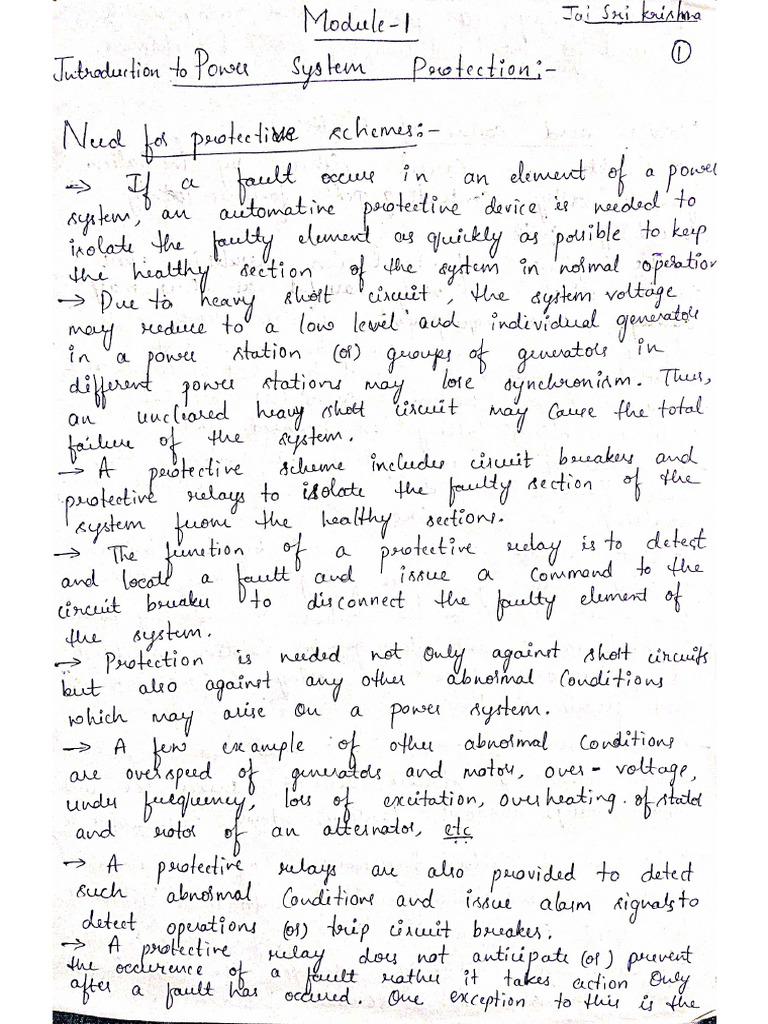 Module-1
Jai Sri Krishna
1
Introduction to Power System Protection:-
Need for protective schemes:-
→ If a fault occurs in an element of a power
system, an automative protective device is needed to
isolate the faulty element as quickly as possible to keep
the healthy section of the system in normal operation
→ Due to heavy short circuit, the system voltage
may reduce to a low level and individual generators
in a power station (or) groups of generators in
different power stations may lose synchronism. Thus,
an uncleared heavy short circuit may cause the total
failure of the system.
→ A protective scheme includes circuit breakers and
protective relays to isolate the faulty section of the
system from the healthy sections.
→ The function of a protective relay is to detect
and locate a fault and issue a command to the
circuit breaker to disconnect the faulty element of
the system.
→ Protection is needed not only against short circuits
but also against any other abnormal conditions
which may arise on a power system.
→ A few example of other abnormal conditions
are overspeed of generators and motor, over-voltage,
under frequency, loss of excitation, overheating of stator
and rotor of an alternator, etc
→ A protective relays are also provided to detect
such abnormal conditions and issue alarm signals to
detect operations (or) trip circuit breaker.
→ A protective relay does not anticipate (or) prevent
the occurence of a fault rather it takes action only
after a fault has occured. One exception to this is the